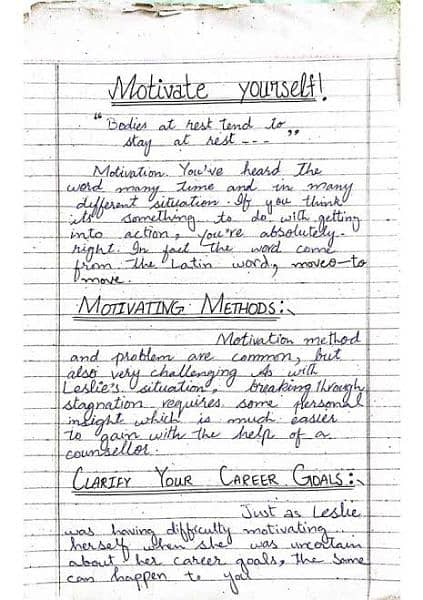 Motivate yourself!
"Bodies at rest tend to
stay at rest --- "
Motivation. You've heard the
word many time and in many
different situation. If you think
its something to do with getting
into action, you're absolutely
right. In fact the word come
from the Latin word, moveo-to
move.
MOTIVATING METHODS:
Motivation method
and problem are common, but
also very challenging As with
Leslie's situation, breaking through
stagnation requires some personal
insight which is much easier
to gain with the help of a
counsellor.
CLARIFY YOUR CAREER GOALS:
Just as Leslie
was having difficulty motivating
herself when she was uncertain
about her career goals, the same
can happen to you